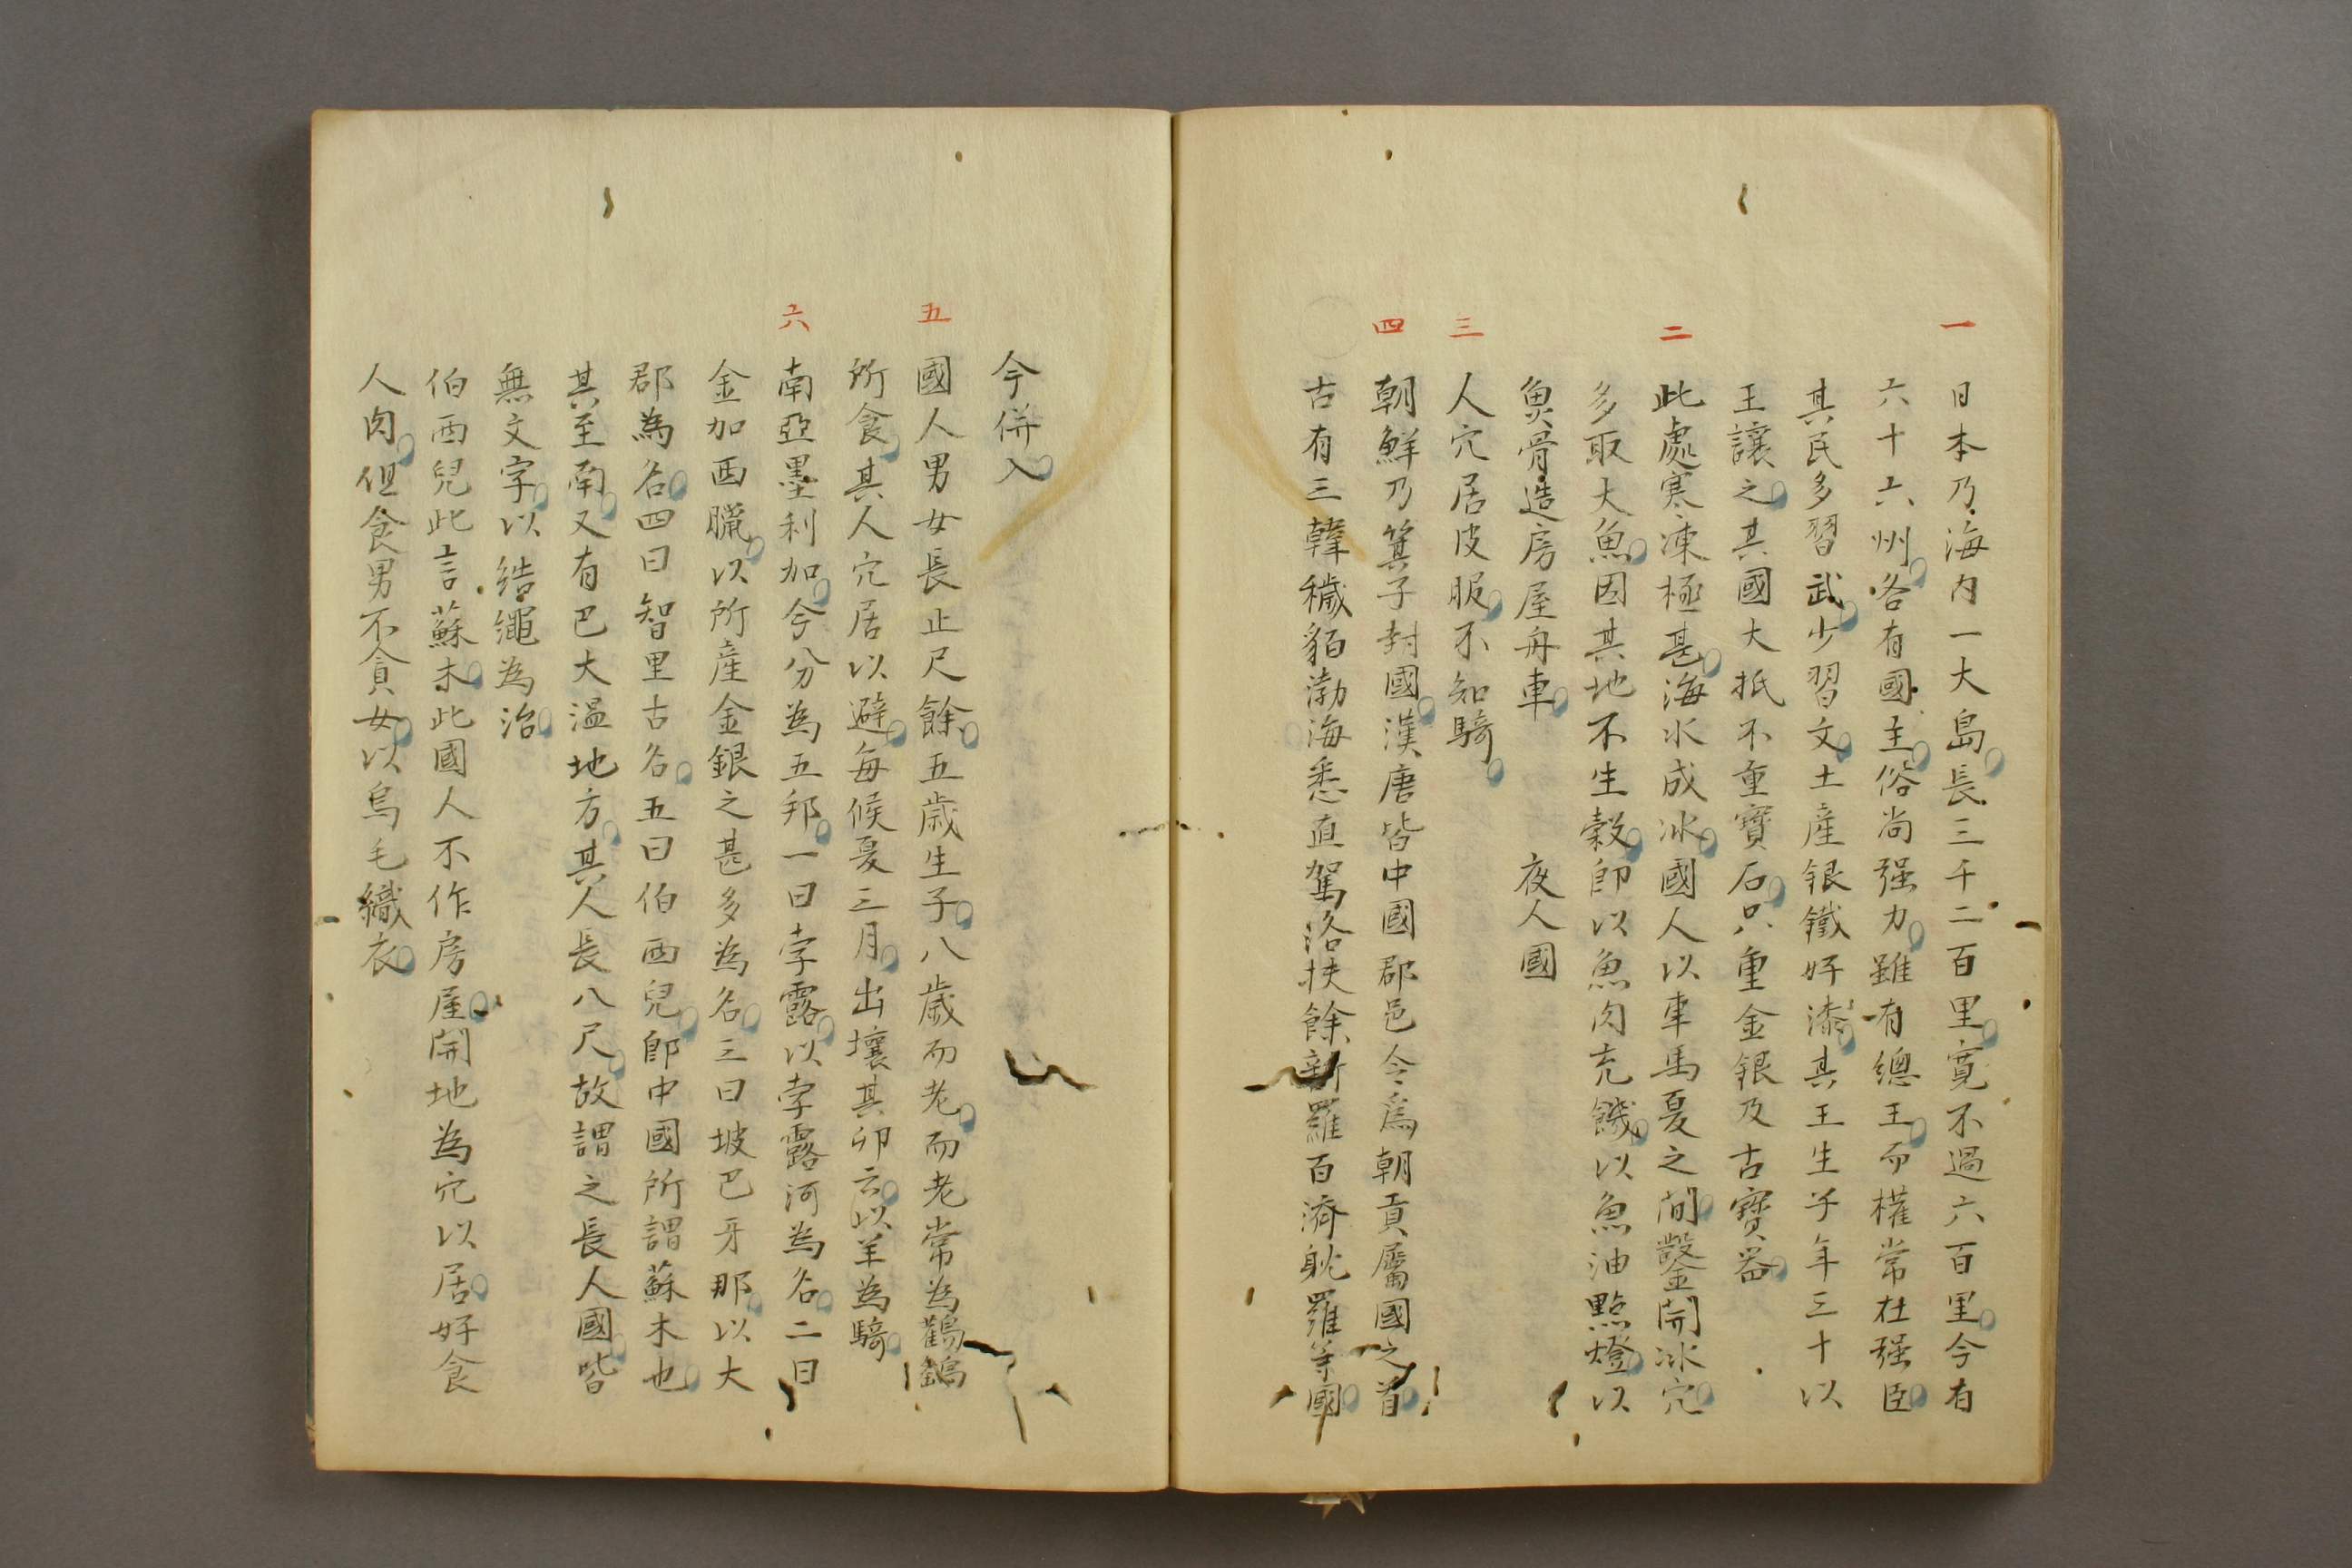 一 日本乃海内一大島長三千二百里寛不過六百里今有
六十六州各有國主俗尚强力雖有總王而權常在强臣
其民多習武少習文土産銀鐵好漆其王生子年三十以
王讓之其國大抵不重寶石只重金銀及古寶器
二 此處寒凍極甚海水成冰國人以車馬夏之間鑿開冰穴
多取大魚因其地不生穀即以魚肉充饑以魚油點燈以
魚骨造房屋舟車 夜人國
三 人穴居皮服不知騎
四 朝鮮乃箕子封國漢唐皆中國郡邑今為朝貢屬國之首
古有三韓穢貊渤海悉直駕洛扶餘新羅百濟躭羅等國
今併入
五 國人男女長止尺餘五歳生子八歳而老而老常為鸛鷂
所食其人穴居以避每候夏三月出壞其卵云以羊為騎
六 南亞墨利加今分為五邦一曰孛露以孛露河為名二曰
金加西臘以所産金銀之甚多為名三曰坡巴牙那以大
郡為名四曰智里古名五曰伯西兒即中國所謂蘇木也
其至南又有巴大温地方其人長八尺故謂之長人國皆
無文字以結繩為治
伯西兒此言蘇木此國人不作房屋開地為穴以居好食
人肉但食男不食女以鳥毛織衣